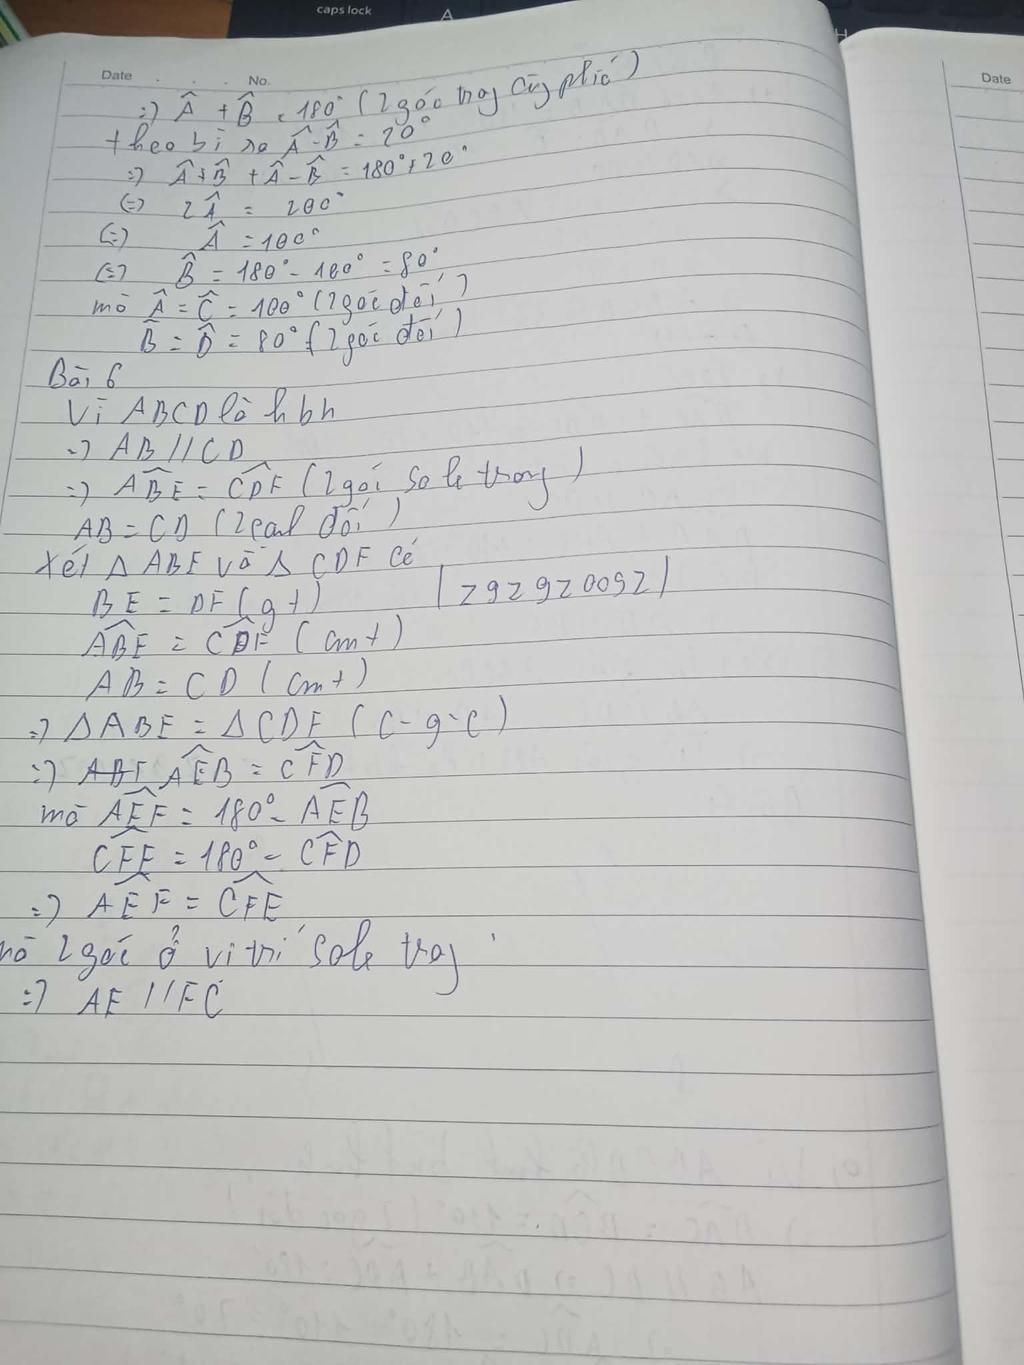 caps lock
A
H
Date . . . No.
Date
=) Â + B̂ = 180° (2 góc trog cùg phíc)
theo bì ra Â-B̂ = 20°
=) Â+B̂ + Â-B̂ = 180°+20°
(=) 2Â = 200°
(=) Â = 100°
(=) B̂ = 180° - 100° = 80°
mà Â = Ĉ = 100° (2 góc đối)
B̂ = D̂ = 80° (2 góc đối)
Bài 6
Vì ABCD là hbh
=) AB // CD
=) ABE = CDF (2 gói so le trong)
AB = CD (2 cah đối)
Xét Δ ABE và Δ CDF có
BE = DF (gt)
|292920092|
ABE = CDF (cmt)
AB = CD (cmt)
=) ΔABE = ΔCDF (c-g-c)
=) AEB = CFD
mà AEF = 180° - AEB
CFE = 180° - CFD
=) AEF = CFE
mà 2 góc ở vi trí Sole trog
=) AE // FC